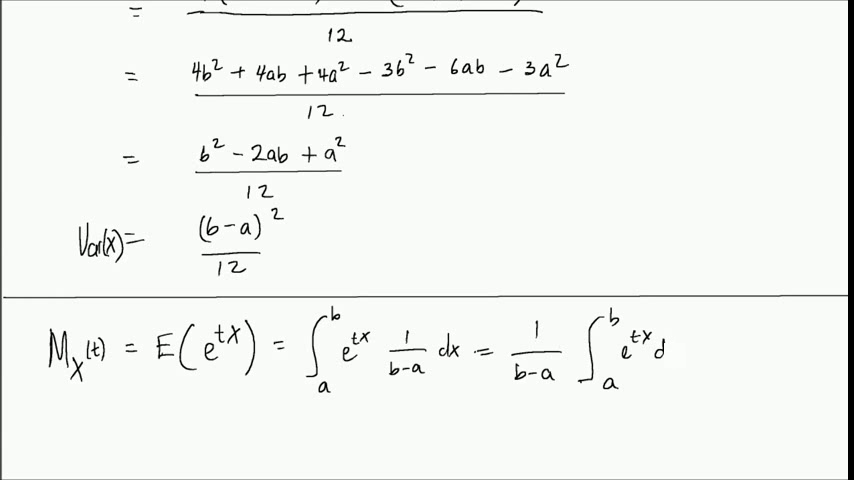 = 12
= 4b² + 4ab + 4a² - 3b² - 6ab - 3a² / 12
= b² - 2ab + a² / 12
Var(X) = (b-a)² / 12
M_X(t) = E(e^{tX}) = ∫_a^b e^{tx} 1/(b-a) dx = 1/(b-a) ∫_a^b e^{tx} d